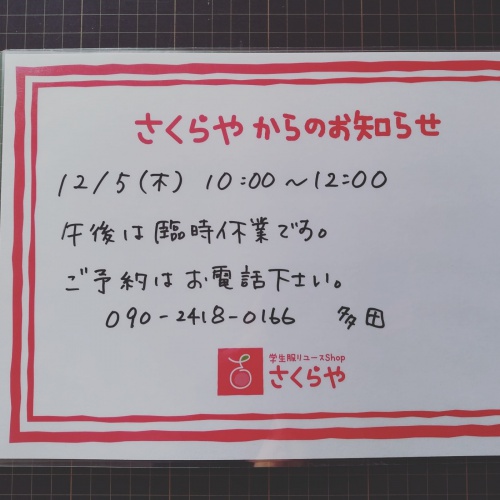 さくらやからのお知らせ
12/5(木) 10:00～12:00
午後は臨時休業です。
ご予約はお電話下さい。
090-2418-0166 多田
学生服リユースShop
さくらや